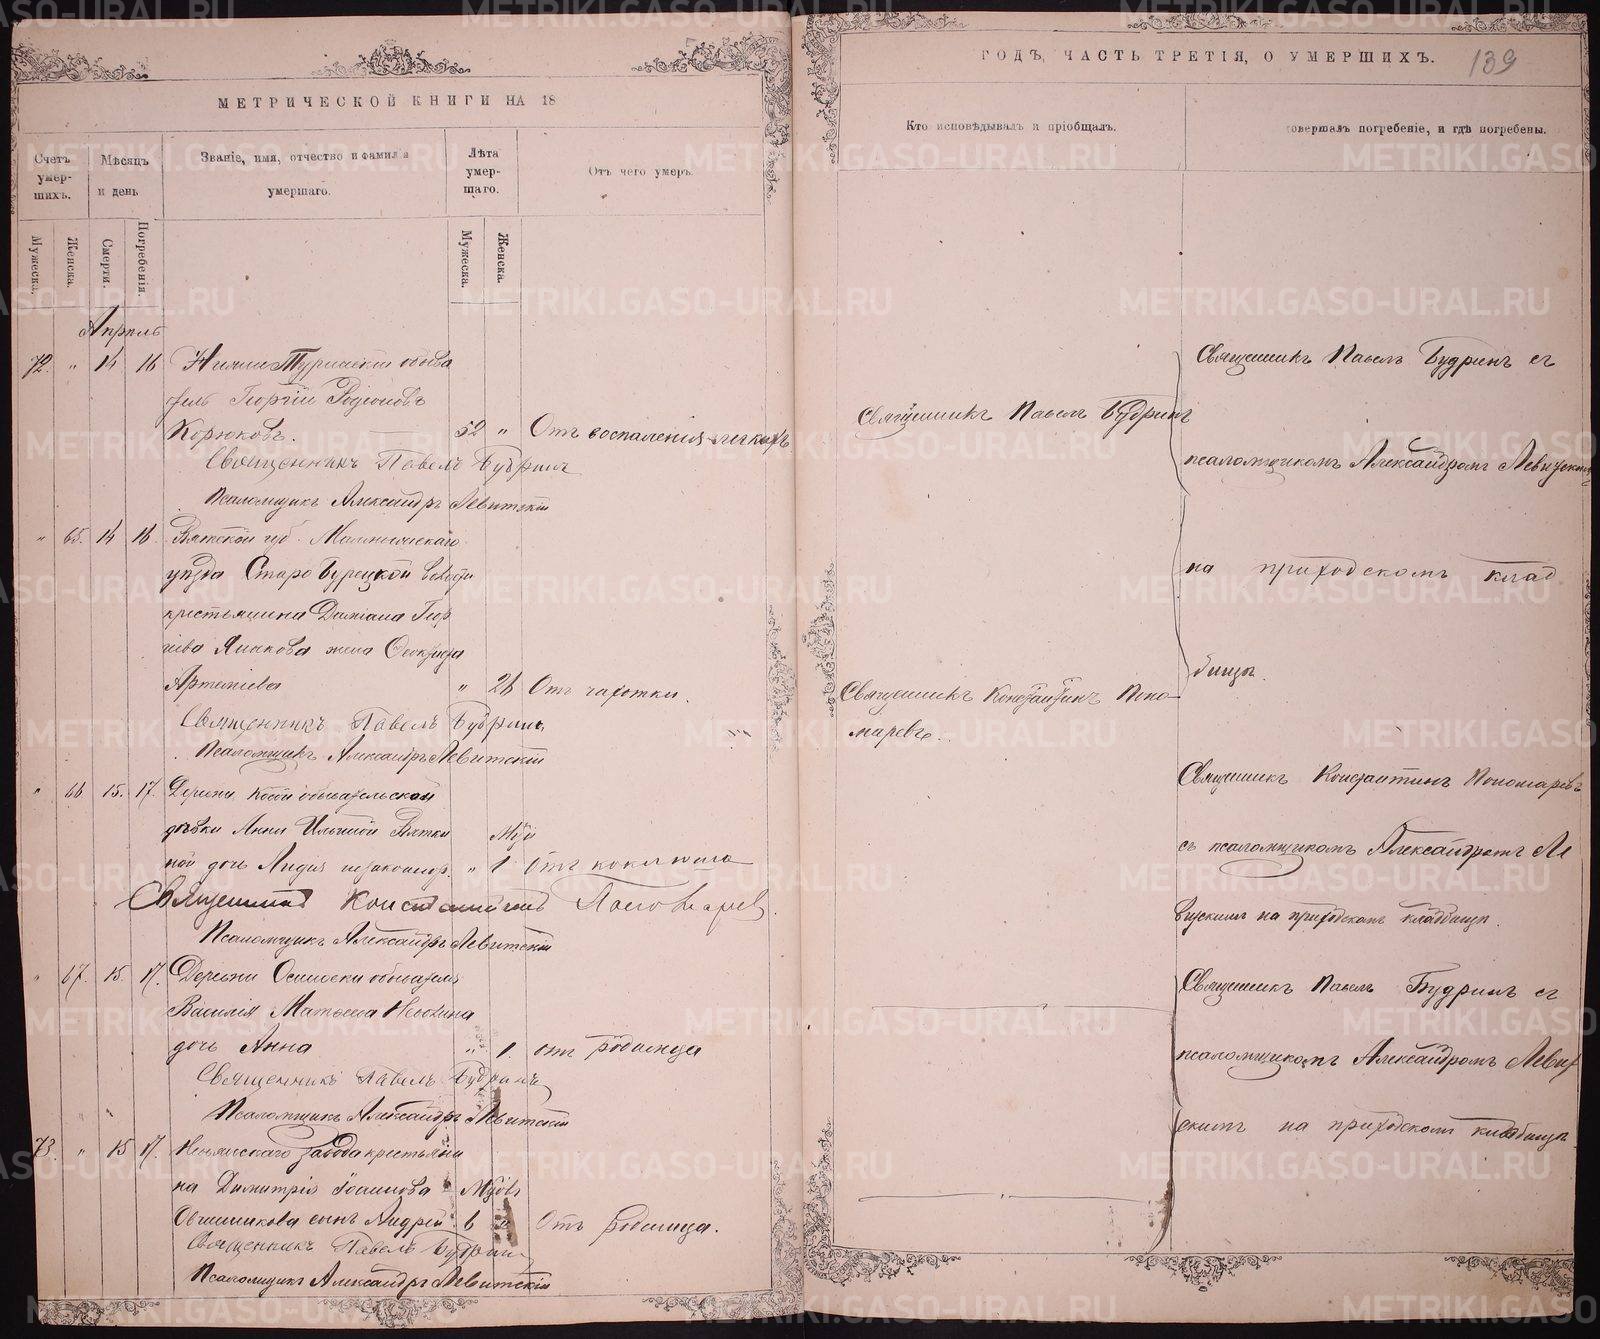 МЕТРИЧЕСКОЙ КНИГИ НА 18
Счетъ умер-шихъ.
Мѣсяцъ и день
Званіе, имя, отчество и фамилія умершаго.
Лѣта умер-шаго.
Отъ чего умеръ.
Мужеска.
Женска.
Смерти.
Погребенія.
Мужеска.
Женска.
Апрѣль
72. " 14 16 Нижне Туринскій обыва
тель Георгій Родіоновъ
Корюковъ. 52 " Отъ воспаленія легкихъ
Священникъ Павелъ Будринъ
Псаломщикъ Александръ Левитскій
" 65. 14 16. Вятской губ. Малмыжскаго
уѣзда Старо Бурецкой волости
крестьянина Даміана Геор
гіева жена
Артеміева " 26 Отъ чахотки.
Священникъ Павелъ Будринъ
Псаломщикъ Александръ Левитскій
" 66 15. 17. Деревни обывательской
дѣвки Анны Ильиной Вятки
ной дочь Лидія незаконнор. " 1 Отъ коклюша
Священникъ Константинъ Пономаревъ
Псаломщикъ Александръ Левитскій
" 67. 15. 17. Деревни обывателя
Василія Матвеева
дочь Анна " 1. отъ родимца
Священникъ Павелъ Будринъ
Псаломщикъ Александръ Левитскій
73. " 15 17. завода крестьяни
на Димитрія Іоаннова
Овчинникова сынъ Андрей 6 " Отъ родимца.
Священникъ Павелъ Будринъ
Псаломщикъ Александръ Левитскій
ГОДЪ, ЧАСТЬ ТРЕТІЯ, О УМЕРШИХЪ.
139
Кто исповѣдывалъ и пріобщалъ.
совершалъ погребеніе, и гдѣ погребены.
Священникъ Павелъ Будринъ
Священникъ Константинъ Поно-
маревъ.
Священникъ Павелъ Будринъ съ
псаломщикомъ Александромъ Левитскимъ
на приходскомъ клад
бищѣ.
Священникъ Константинъ Пономаревъ
съ псаломщикомъ Александромъ Ле
витскимъ на приходскомъ кладбищѣ.
Священникъ Павелъ Будринъ съ
псаломщикомъ Александромъ Левит
скимъ на приходскомъ кладбищѣ.
METRIKI.GASO-URAL.RU